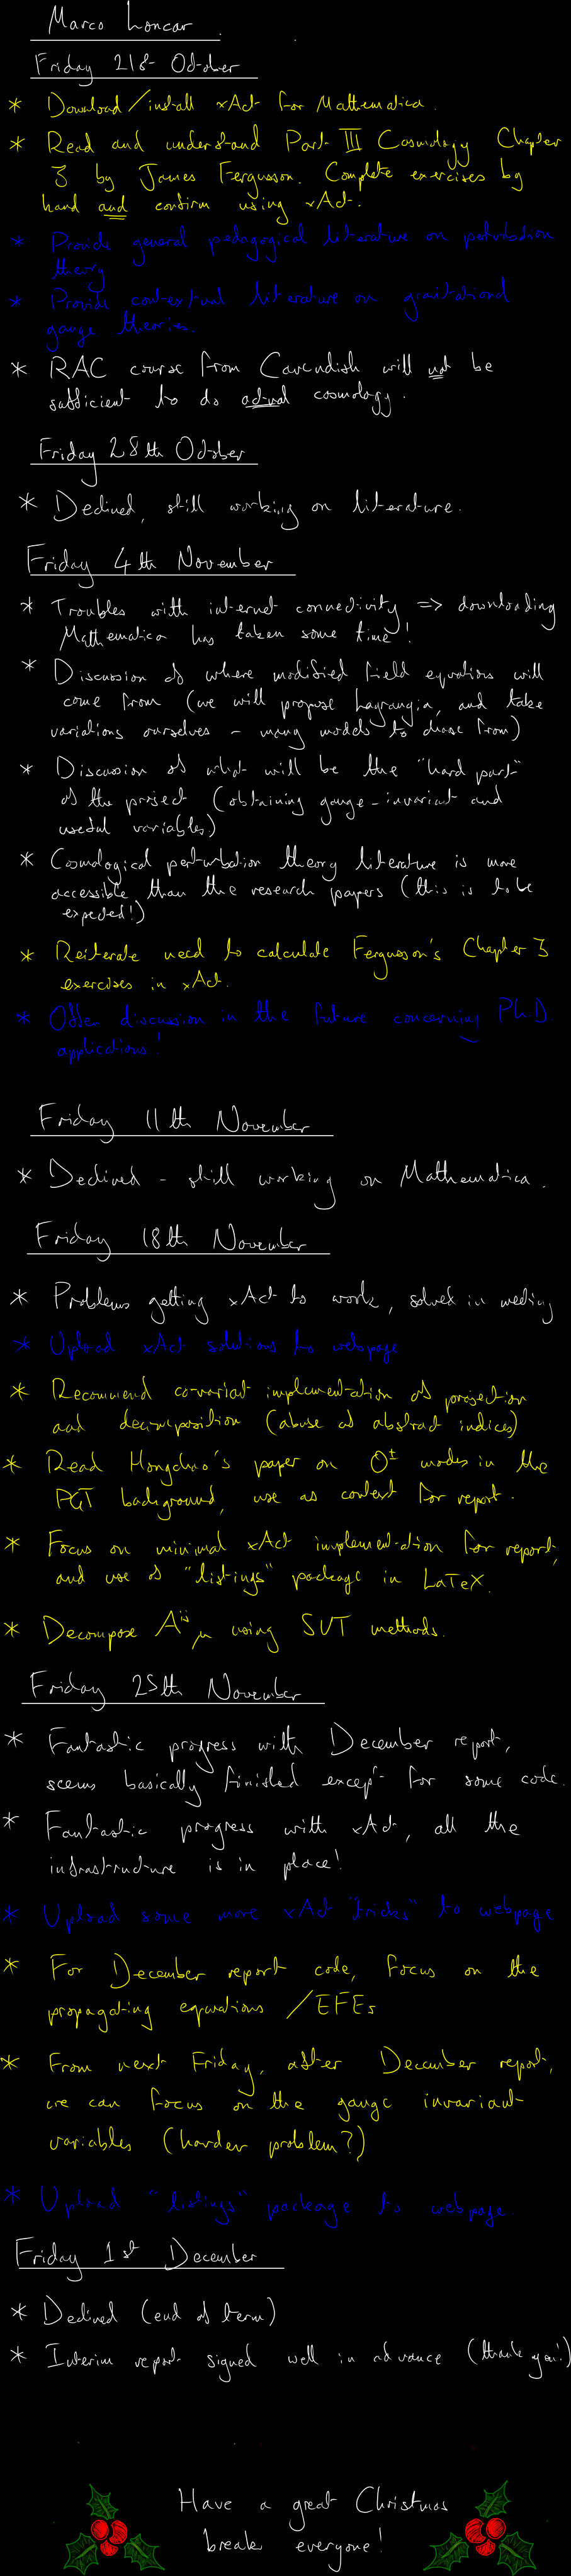 Marco Loncar
Friday 21st October
* Download/install xAct for Mathematica.
* Read and understand Part III Cosmology Chapter
3 by James Fergusson. Complete exercises by
hand and confirm using xAct.
* Provide general pedagogical literature on perturbation
theory
* Provide contextual literature on gravitational
gauge theories.
* RAC course from Cavendish will not be
sufficient to do actual cosmology.
Friday 28th October
* Declined, still working on literature.
Friday 4th November
* Troubles with internet connectivity => downloading
Mathematica has taken some time!
* Discussion of where modified field equations will
come from (we will propose Lagrangia, and take
variations ourselves - many models to choose from)
* Discussion of what will be the "hard part"
of the project (obtaining gauge-invariant and
useful variables)
* Cosmological perturbation theory literature is more
accessible than the research papers (this is to be
expected!)
* Reiterate need to calculate Fergusson's Chapter 3
exercises in xAct.
* Offer discussion in the future concerning PhD
applications!
Friday 11th November
* Declined - still working on Mathematica.
Friday 18th November
* Problems getting xAct to work, solved in meeting
* Upload xAct solutions to webpage
* Recommend co-variat implementation of projection
and decomposition (abuse of abstract indices)
* Read Hongchao's paper on 0± modes in the
PGT background, use as context for report.
* Focus on minimal xAct implementation for report,
and use of "listings" package in LaTeX.
* Decompose A^{ij}_μ using SVT methods.
Friday 25th November
* Fantastic progress with December report,
seems basically finished except for some code.
* Fantastic progress with xAct, all the
infrastructure is in place!
* Upload some more xAct "tricks" to webpage
* For December report code, focus on the
propagating equations / EFEs
* From next Friday, after December report,
we can focus on the gauge invariant
variables (harder problem?)
* Upload "listings" package to webpage.
Friday 1st December
* Declined (end of term)
* Interim report signed well in advance (thank you!)
Have a great Christmas
break everyone!